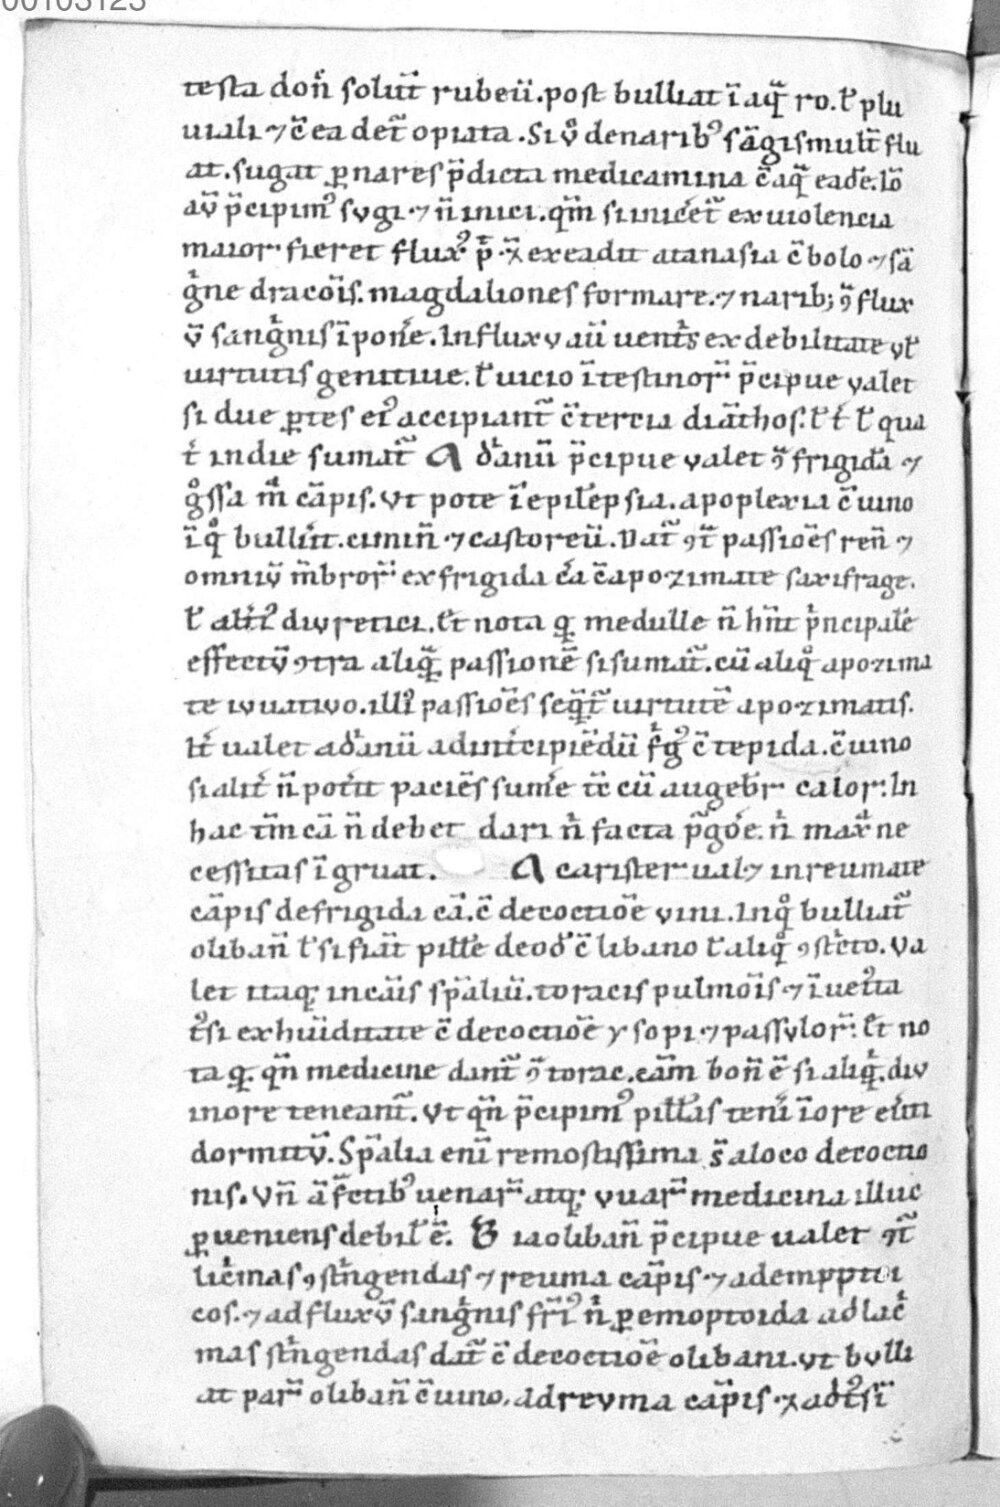 00103123
testa don̄ solut̄ rubeū. post bulliat ī aq̄ ro. ł plu
uiali ⁊ c̄ ea det̄ opiata. Si v̊ denarib᷒ sāgis mult̄ flu
at. sugat ꝑ nares p̄dicta medicamina c̄ aq̄ eadē. lō
aū p̄cipim᷒ sugi ⁊ n̄ inici. qm̄ si inicēt̄ ex uiolencia
maior fieret flux᷒ ex eadē atanasia c̄ bolo ⁊ sā
gͥne dracōis. magdaliones formare. ⁊ narib; ꝯ̄ flux
v̄ sangͥnis ī ponē. In fluxv aū uentͥs ex debilitate vł
uirtutis genitiue. ł uicio ītestinor̄ p̄cipue valet
si due ꝑtes ei᷒ accipiant̄ c̄ tercia diāthos. ł t̄ ł qua
t̄ in die sumat̄ Adͥanū p̄cipue valet ꝯ̄ frigidā ⁊
gͦssā m̄ cāpis. Vt pote ī epileṕsia. apoplexia c̄ uino
ī qͦ bulliīt. cimin̄ ⁊ castoreū. Dat̄ ꝯt̄ passiōes ren̄ ⁊
omniv̄ m̄bror̄ ex frigida cā c̄ apozimate saxifrage.
ł alt̄i᷒ diuretici. Et nota ꝙ medulle n̄ hn̄t pͥncipalē
effectv̄ ꝯtra aliq̄ passionē si sumat̄. cū aliqͦ apozima
te iuuatiuo. illi᷒ passiōes seq̄t̄ uirtutē apozimatis.
It̄ ualet adͥanū ad int̄cipiēdū fͥg᷒ c̄ tepida. c̄ uino
si alit̄ n̄ pot̄it paciēs sumē tc̄ cū augebr̄ calor. In
hac tm̄ cā n̄ debet dari nͥ facta p̄gōe. nͥ max̄ ne
cessitas ī gruat. Acarister ual; ⁊ in reumate
cāpis de frigida cā. c̄ decoctiōe vini. In qͦ bulliat̄
oliban̄ ł si fiāt pillē de od᷒ c̄ libano ł aliqͦ ꝯstͥcto. Va
let itaq; in cāis sp̄aliū. toracis pulmōis ⁊ īuet̄ta
t᷒si ex hūiditate c̄ decoctiōe ysopi ⁊ passulor̄. Et no
ta ꝙ qn̄ medicine dant̄ ꝯ̄ torac. cām bon̄ ē si aliqͥ. diu
in ore teneant̄. Vt qn̄ p̄cipim᷒ pillłas tenī ī ore etiā
dormitū. Sp̄alia enī remotissima s̄ a loco decoctio
nis. Vn̄ ā fc̄tib᷒ uenar̄ atq; vuar̄ medicina illuc
ꝑueniens debil̄ ē. Diaoliban̄ p̄cipue ualet ꝯt̄
lic̄mas ꝯstͥngendas ⁊ reuma cāpis ⁊ ad emppti
cos. ⁊ ad fluxū sangͥnis nͥ ꝑ emoptoida ad lac̄
mas stͥngendas dat̄ c̄ decoctiōe olibani. vt bulli
at par̄ oliban̄ c̄ uino. ad revma cāpis ⁊ ad t᷒sī